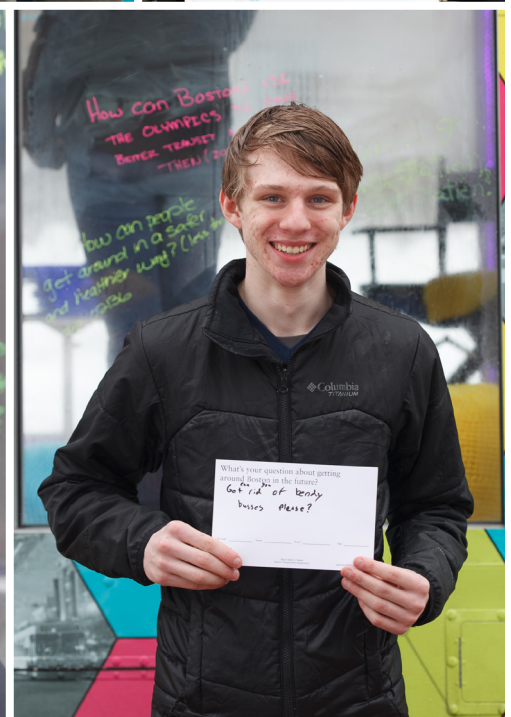 How can Boston
THE OLYMPICS
BETTER TRANSIT
THEN
how can people
get around in a safer
and healthier way? (less
Columbia
TITANIUM
What's your question about getting
around Boston in the future?
can you
Get rid of bendy
busses please?